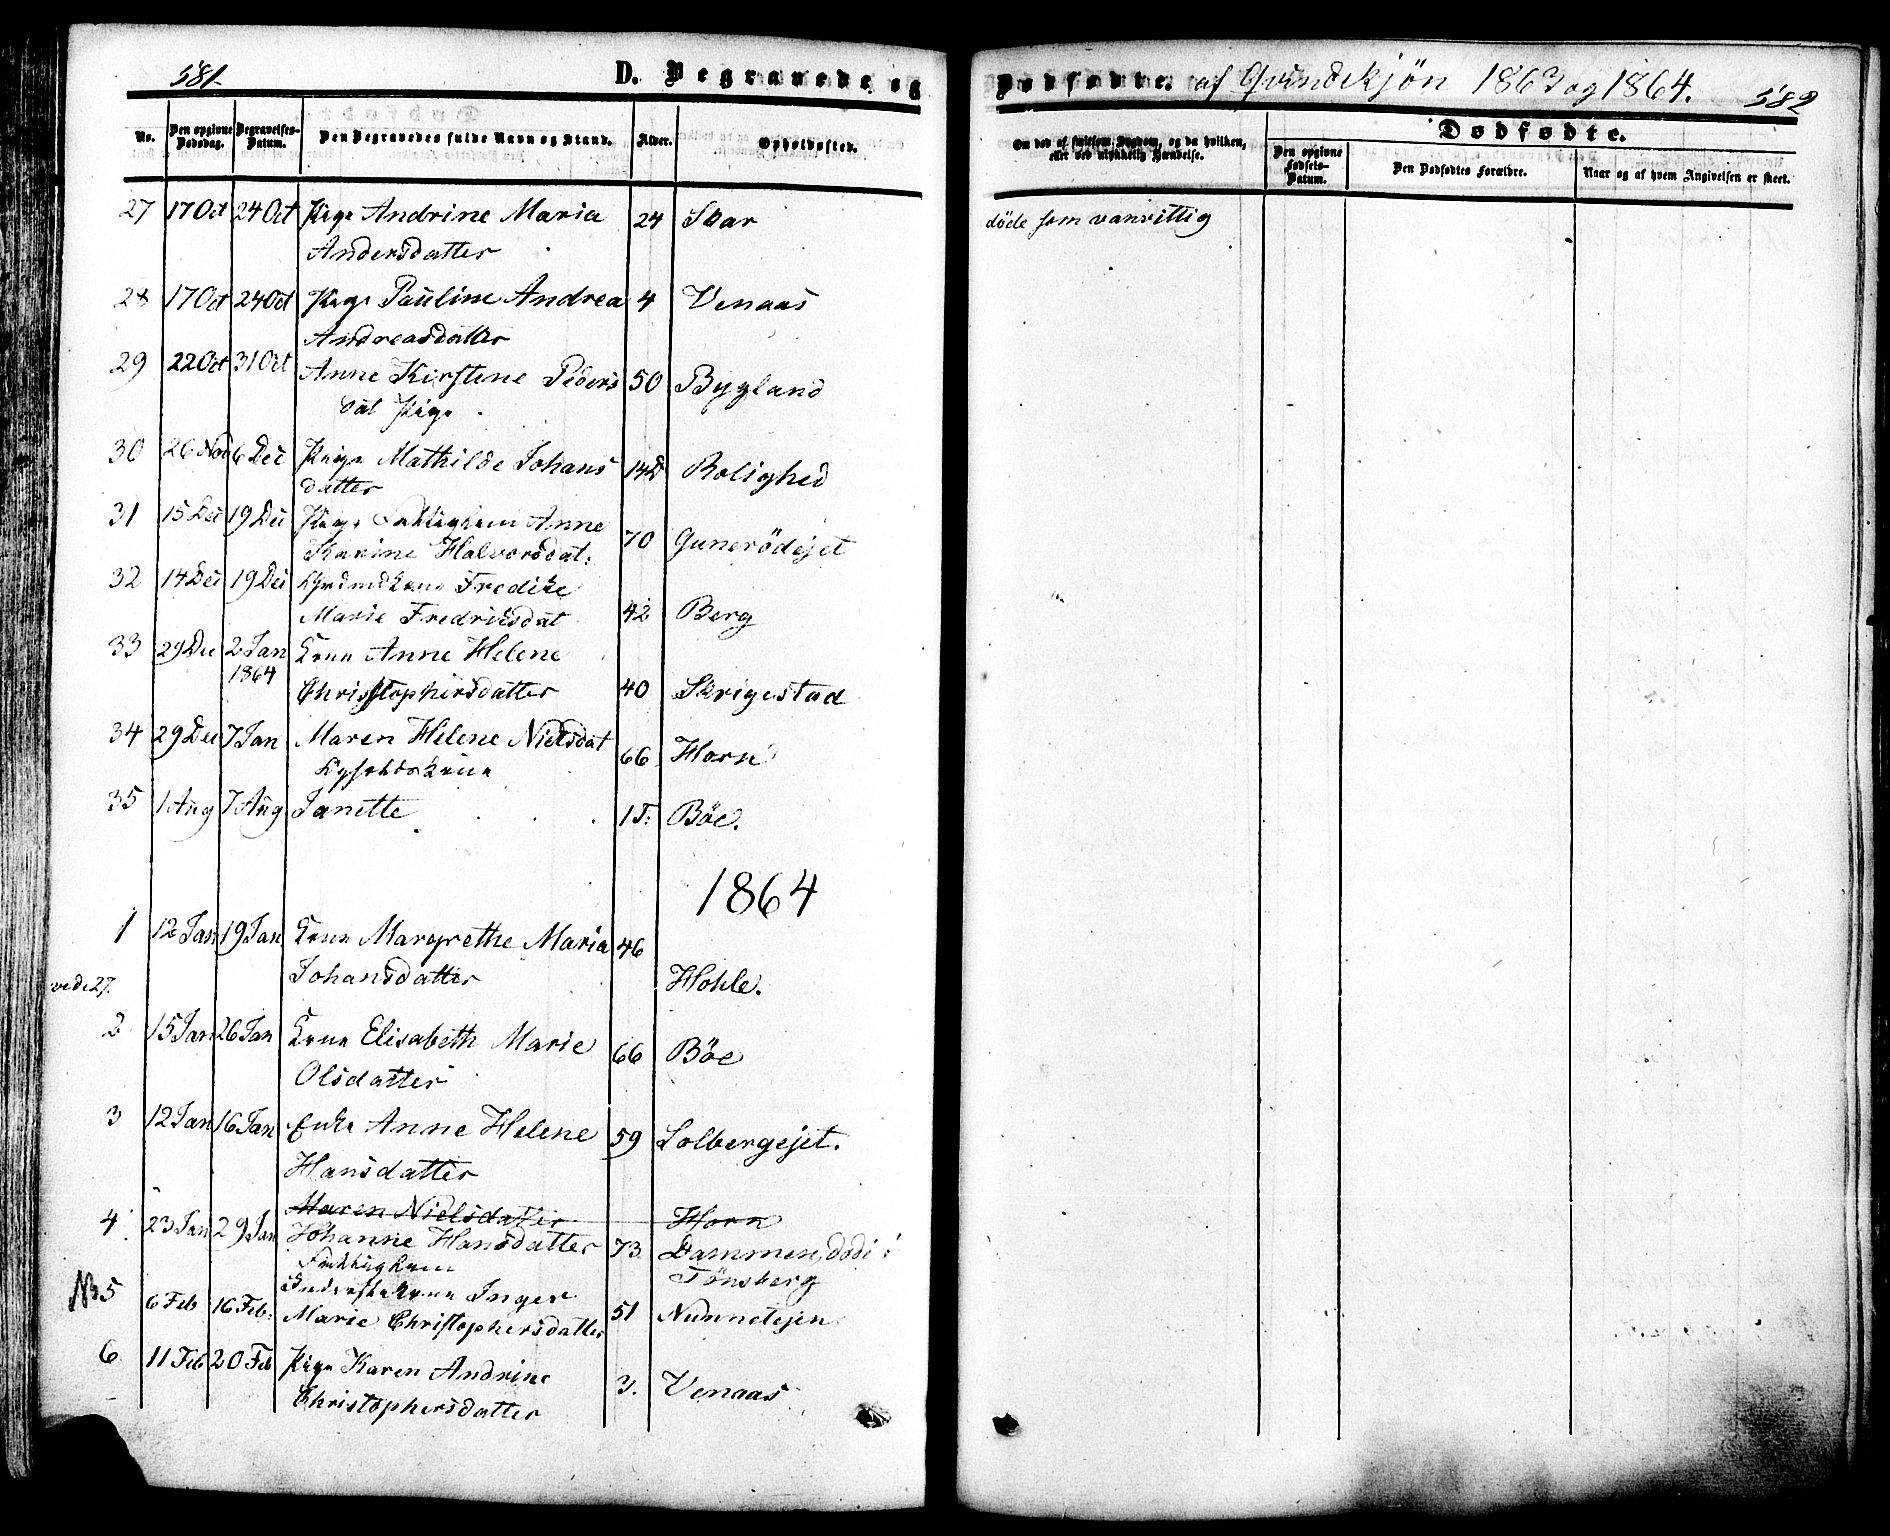 581.
D. Begravede og
No.
Den opgivne Dødsdag.
Begravelses-Datum.
Den Begravedes fulde Navn og Stand.
Alder.
Opholdssted.
27 17 Oct 24 Oct Pige Andrine Maria 24 Skar
Andersdatter
28 17 Oct 24 Oct Pige Pauline Andrea 4 Venaas
Andreasdatter
29 22 Oct 31 Oct Anne Kirstene Peders 50 Bygland
dat Pige
30 26 Nov 6 Dec Pige Mathilde Johans 14 D Rolighed
datter
31 15 Dec 19 Dec Pige Anne
Karine Halvorsdat: 70 Gunerödejet
32 14 Dec 19 Dec Fredike
Marie Fredriksdat 42 Berg
33 29 Dec 2 Jan Kone Anne Helene
1864
Christophersdatter 40 Skrigestad
34 29 Dec 7 Jan Maren Helene Nielsdat 66 Horn
35 1 Aug 7 Aug Janette 1 T. Böe.
1864
1 12 Jan 19 Jan Kone Margrethe Maria 46
Johansdatter Hohle.
vide 27.
2 15 Jan 26 Jan Kone Elisabeth Marie 66 Böe
Olsdatter
3 12 Jan 16 Jan Enke Anne Helene 59 Solbergejet.
Hansdatter
Maren Nielsdatter Horn
4 23 Jan 29 Jan Johanne Hansdatter 73 Dammen, döde i
Tönsberg
No 5 Inderstekone Inger
6 Feb 16 Feb: Marie Christophersdatter 51 Nunnetejen
6 11 Feb 20 Feb Pige Karen Andrine 3. Venaas
Christophersdatter
Dødfødte. af Qvindekjøn 1863 og 1864. 582
Om død af smitsom Sygdom, og da hvilken,
eller ved ulykkelig Hændelse.
Dødfødte.
Den opgivne Fødsels-Datum.
Den Dødfødtes Forældre.
Naar og af hvem Angivelsen er skeet.
döde som vanvittig